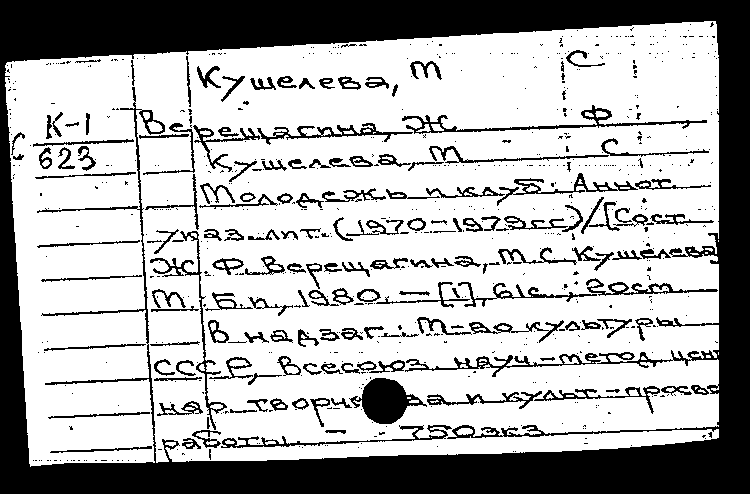 Кушелева, М С
К-1 Верещагина, Ж Ф ,
623 Кушелева, М С
Молодежь и клуб: Аннот.
указ. лит. (1970-1979гг)/[Сост.
Ж.Ф. Верещагина, М.С. Кушелева]
М.: Б.и., 1980. — [1], 61с.; 20см.
В надзаг.: М-во культуры
СССР, Всесоюз. науч.-метод. цент
нар. творче ва и культ.-просве
работы. — 750экз